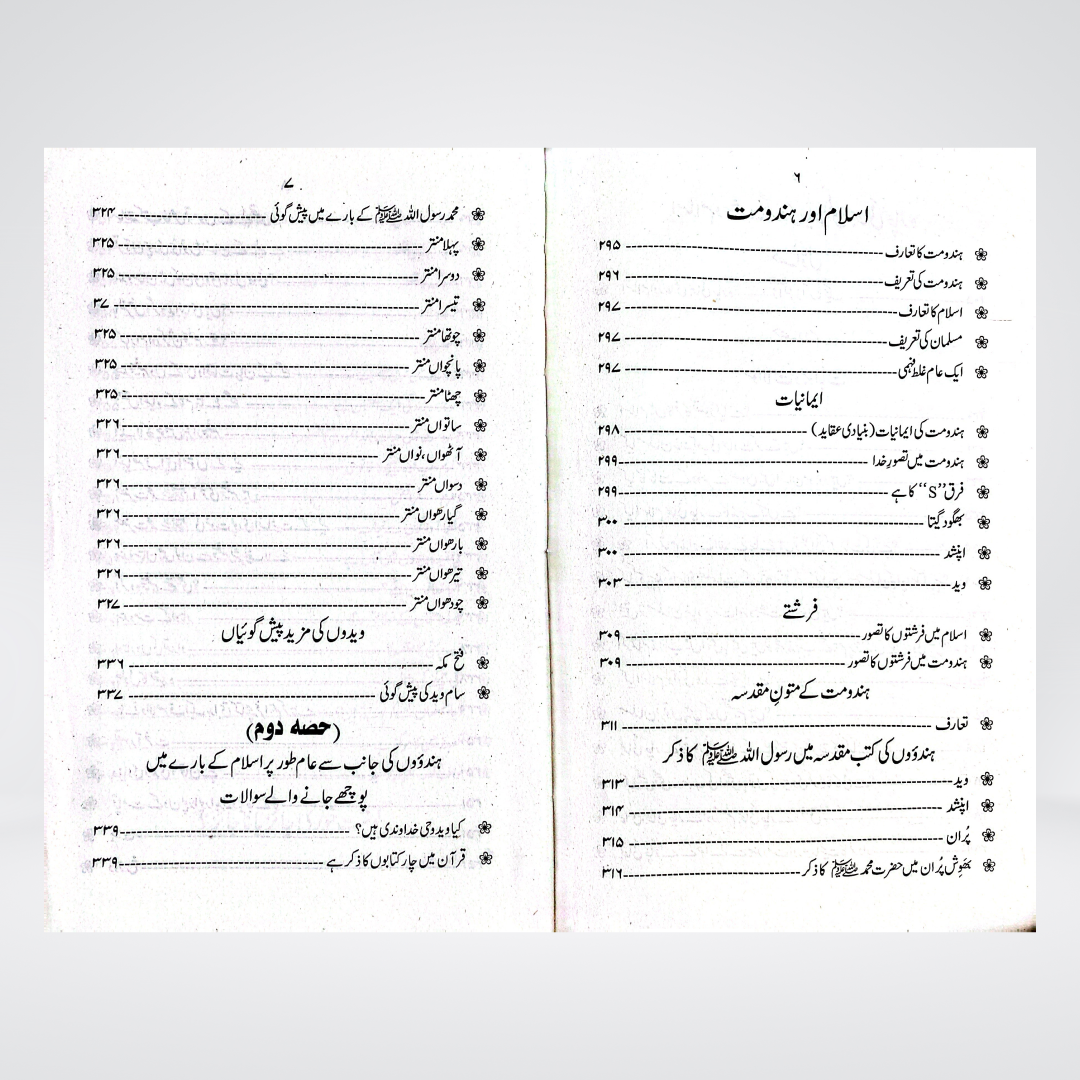 ۶
اسلام اور ہندومت
❀ ہندومت کا تعارف ---- ۲۹۵
❀ ہندومت کی تعریف ---- ۲۹۶
❀ اسلام کا تعارف ---- ۲۹۷
❀ مسلمان کی تعریف ---- ۲۹۷
❀ ایک عام غلط فہمی ---- ۲۹۷
ایمانیات
❀ ہندومت کی ایمانیات (بنیادی عقاید) ---- ۲۹۸
❀ ہندومت میں تصورِ خدا ---- ۲۹۹
❀ فرق ”S“ کا ہے ---- ۲۹۹
❀ بھگود گیتا ---- ۳۰۰
❀ اپنشد ---- ۳۰۰
❀ وید ---- ۳۰۳
فرشتے
❀ اسلام میں فرشتوں کا تصور ---- ۳۰۹
❀ ہندومت میں فرشتوں کا تصور ---- ۳۰۹
ہندومت کے متونِ مقدسہ
❀ تعارف ---- ۳۱۱
ہندوؤں کی کتب مقدسہ میں رسول اللہ ﷺ کا ذکر
❀ وید ---- ۳۱۳
❀ اپنشد ---- ۳۱۴
❀ پُران ---- ۳۱۵
❀ بھَوِش پُران میں حضرت محمد ﷺ کا ذکر ---- ۳۱۶
۷
❀ محمد رسول اللہ ﷺ کے بارے میں پیش گوئی ---- ۳۲۴
❀ پہلا منتر ---- ۳۲۵
❀ دوسرا منتر ---- ۳۲۵
❀ تیسرا منتر ---- ۳۷
❀ چوتھا منتر ---- ۳۲۵
❀ پانچواں منتر ---- ۳۲۵
❀ چھٹا منتر ---- ۳۲۵
❀ ساتواں منتر ---- ۳۲۶
❀ آٹھواں، نواں منتر ---- ۳۲۶
❀ دسواں منتر ---- ۳۲۶
❀ گیارھواں منتر ---- ۳۲۶
❀ بارھواں منتر ---- ۳۲۶
❀ تیرھواں منتر ---- ۳۲۶
❀ چودھواں منتر ---- ۳۲۷
ویدوں کی مزید پیش گوئیاں
❀ فتح مکہ ---- ۳۳۶
❀ سام وید کی پیش گوئی ---- ۳۳۷
(حصہ دوم)
ہندوؤں کی جانب سے عام طور پر اسلام کے بارے میں
پوچھے جانے والے سوالات
❀ کیا وید وحی خداوندی ہیں؟ ---- ۳۳۹
❀ قرآن میں چار کتابوں کا ذکر ہے ---- ۳۳۹